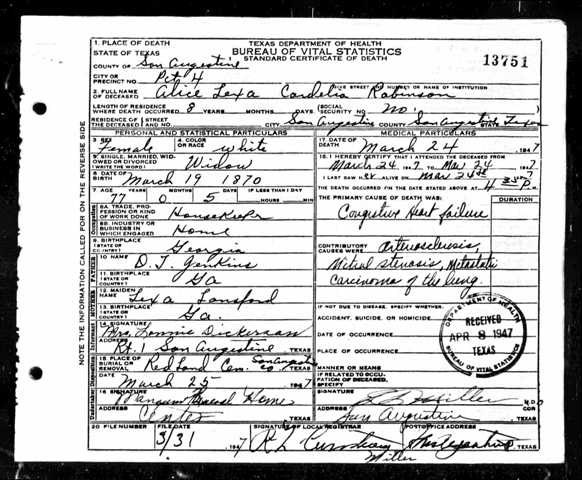 NOTE THE INFORMATION CALLED FOR ON THE REVERSE SIDE.
1. PLACE OF DEATH
STATE OF TEXAS
TEXAS DEPARTMENT OF HEALTH
BUREAU OF VITAL STATISTICS
STANDARD CERTIFICATE OF DEATH
13751
COUNTY OF San Augustine
CITY OR PRECINCT NO. Pct 4
GIVE STREET NUMBER OR NAME OF INSTITUTION
2. FULL NAME OF DECEASED Alice Lexa Cordelia Robinson
LENGTH OF RESIDENCE WHERE DEATH OCCURRED 8 YEARS MONTHS DAYS SOCIAL SECURITY NO. no
RESIDENCE OF THE DECEASED STREET AND NO. CITY San Augustine COUNTY San Augustine STATE Texas
PERSONAL AND STATISTICAL PARTICULARS
3. SEX Female 4. COLOR OR RACE White
5. SINGLE, MARRIED, WIDOWED OR DIVORCED Widow
6. DATE OF BIRTH March 19 1870
7. AGE 77 YEARS 0 MONTHS 5 DAYS IF LESS THAN 1 DAY HOURS MIN
8A. TRADE, PROFESSION OR KIND OF WORK DONE Housekeeper
8B. INDUSTRY OR BUSINESS IN WHICH ENGAGED Home
9. BIRTHPLACE (STATE OR COUNTRY) Georgia
FATHER 10 NAME D. J. Jenkins
11. BIRTHPLACE (STATE OR COUNTRY) Ga
MOTHER 12. MAIDEN NAME Lexa Lansford
13. BIRTHPLACE (STATE OR COUNTRY) Ga.
14. SIGNATURE Mrs. Lonnie Dickerson
ADDRESS Rt. 1 San Augustine TEXAS
15. PLACE OF BURIAL OR REMOVAL Red Land Cem. San Augustine Co. TEXAS
DATE March 25 1947
16. SIGNATURE Mangum Funeral Home
ADDRESS Center TEXAS
MEDICAL PARTICULARS
17. DATE OF DEATH March 24 1947
18. I HEREBY CERTIFY THAT I ATTENDED THE DECEASED FROM
March 24 1947 TO Mar 24 1947
I LAST SAW HER ALIVE ON Mar 24 1947
THE DEATH OCCURRED ON THE DATE STATED ABOVE AT 4 P.M.
THE PRIMARY CAUSE OF DEATH WAS: DURATION
Congestive Heart failure
CONTRIBUTORY CAUSES WERE: arterosclerosis,
Mitral stenosis, Metastatic
Carcinoma of the lung.
IF NOT DUE TO DISEASE, SPECIFY WHETHER:
ACCIDENT, SUICIDE, OR HOMICIDE
DATE OF OCCURRENCE
PLACE OF OCCURRENCE
MANNER OR MEANS
IF RELATED TO OCCUPATION OF DECEASED, SPECIFY
DEPARTMENT OF HEALTH
RECEIVED
APR 8 1947
TEXAS
BUREAU OF VITAL STATISTICS
SIGNATURE Miller M.D. OR
ADDRESS San Augustine TEXAS
20. FILE NUMBER FILE DATE 3/31 1947
SIGNATURE OF LOCAL REGISTRAR Miller
POSTOFFICE ADDRESS San Augustine TEXAS